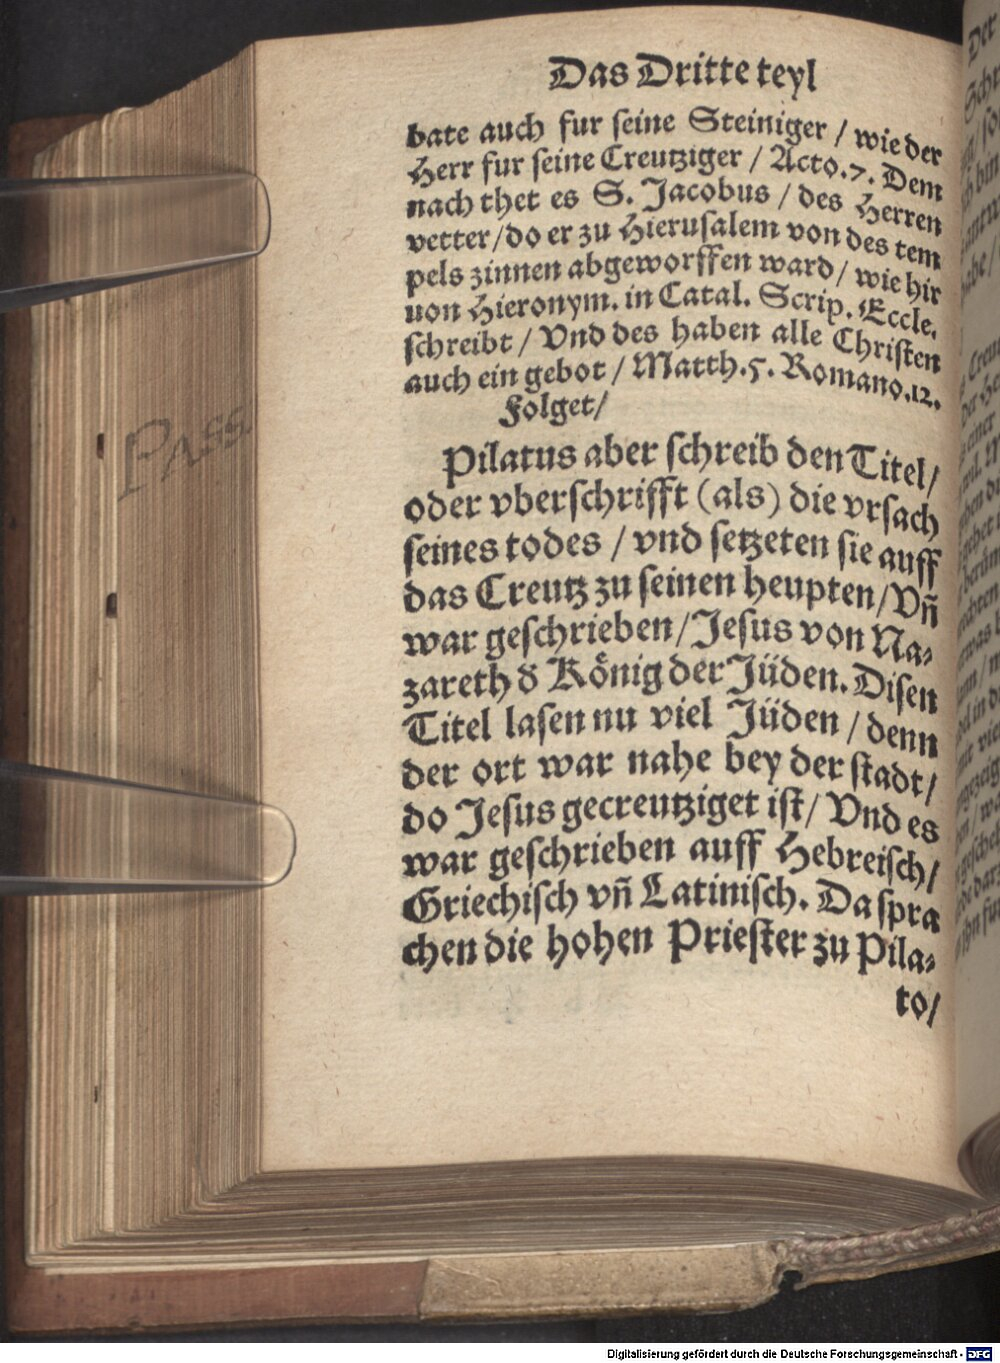 Das Dritte teyl
bate auch fur seine Steiniger / wie der
Herr fur seine Creutziger / Acto.7. Dem
nach thet es S. Jacobus / des Herren
vetter/do er zu Hierusalem von des tem
pels zinnen abgeworffen ward / wie hir
uon Hieronym. in Catal. Scrip. Eccle.
schreibt / Vnd des haben alle Christen
auch ein gebot / Matth.5. Romano.12.
Folget/
Pilatus aber schreib den Titel/
oder vberschrifft (als) die vrsach
seines todes / vnd setzeten sie auff
das Creutz zu seinen heupten/Vñ
war geschrieben/Jesus von Na-
zareth d̕ König der Jüden. Disen
Titel lasen nu viel Jüden / denn
der ort war nahe bey der stadt/
do Jesus gecreutziget ist/ Vnd es
war geschrieben auff Hebreisch/
Griechisch vñ Latinisch. Da spra
chen die hohen Priester zu Pila-
to/
PASS.
Digitalisierung gefördert durch die Deutsche Forschungsgemeinschaft - DFG